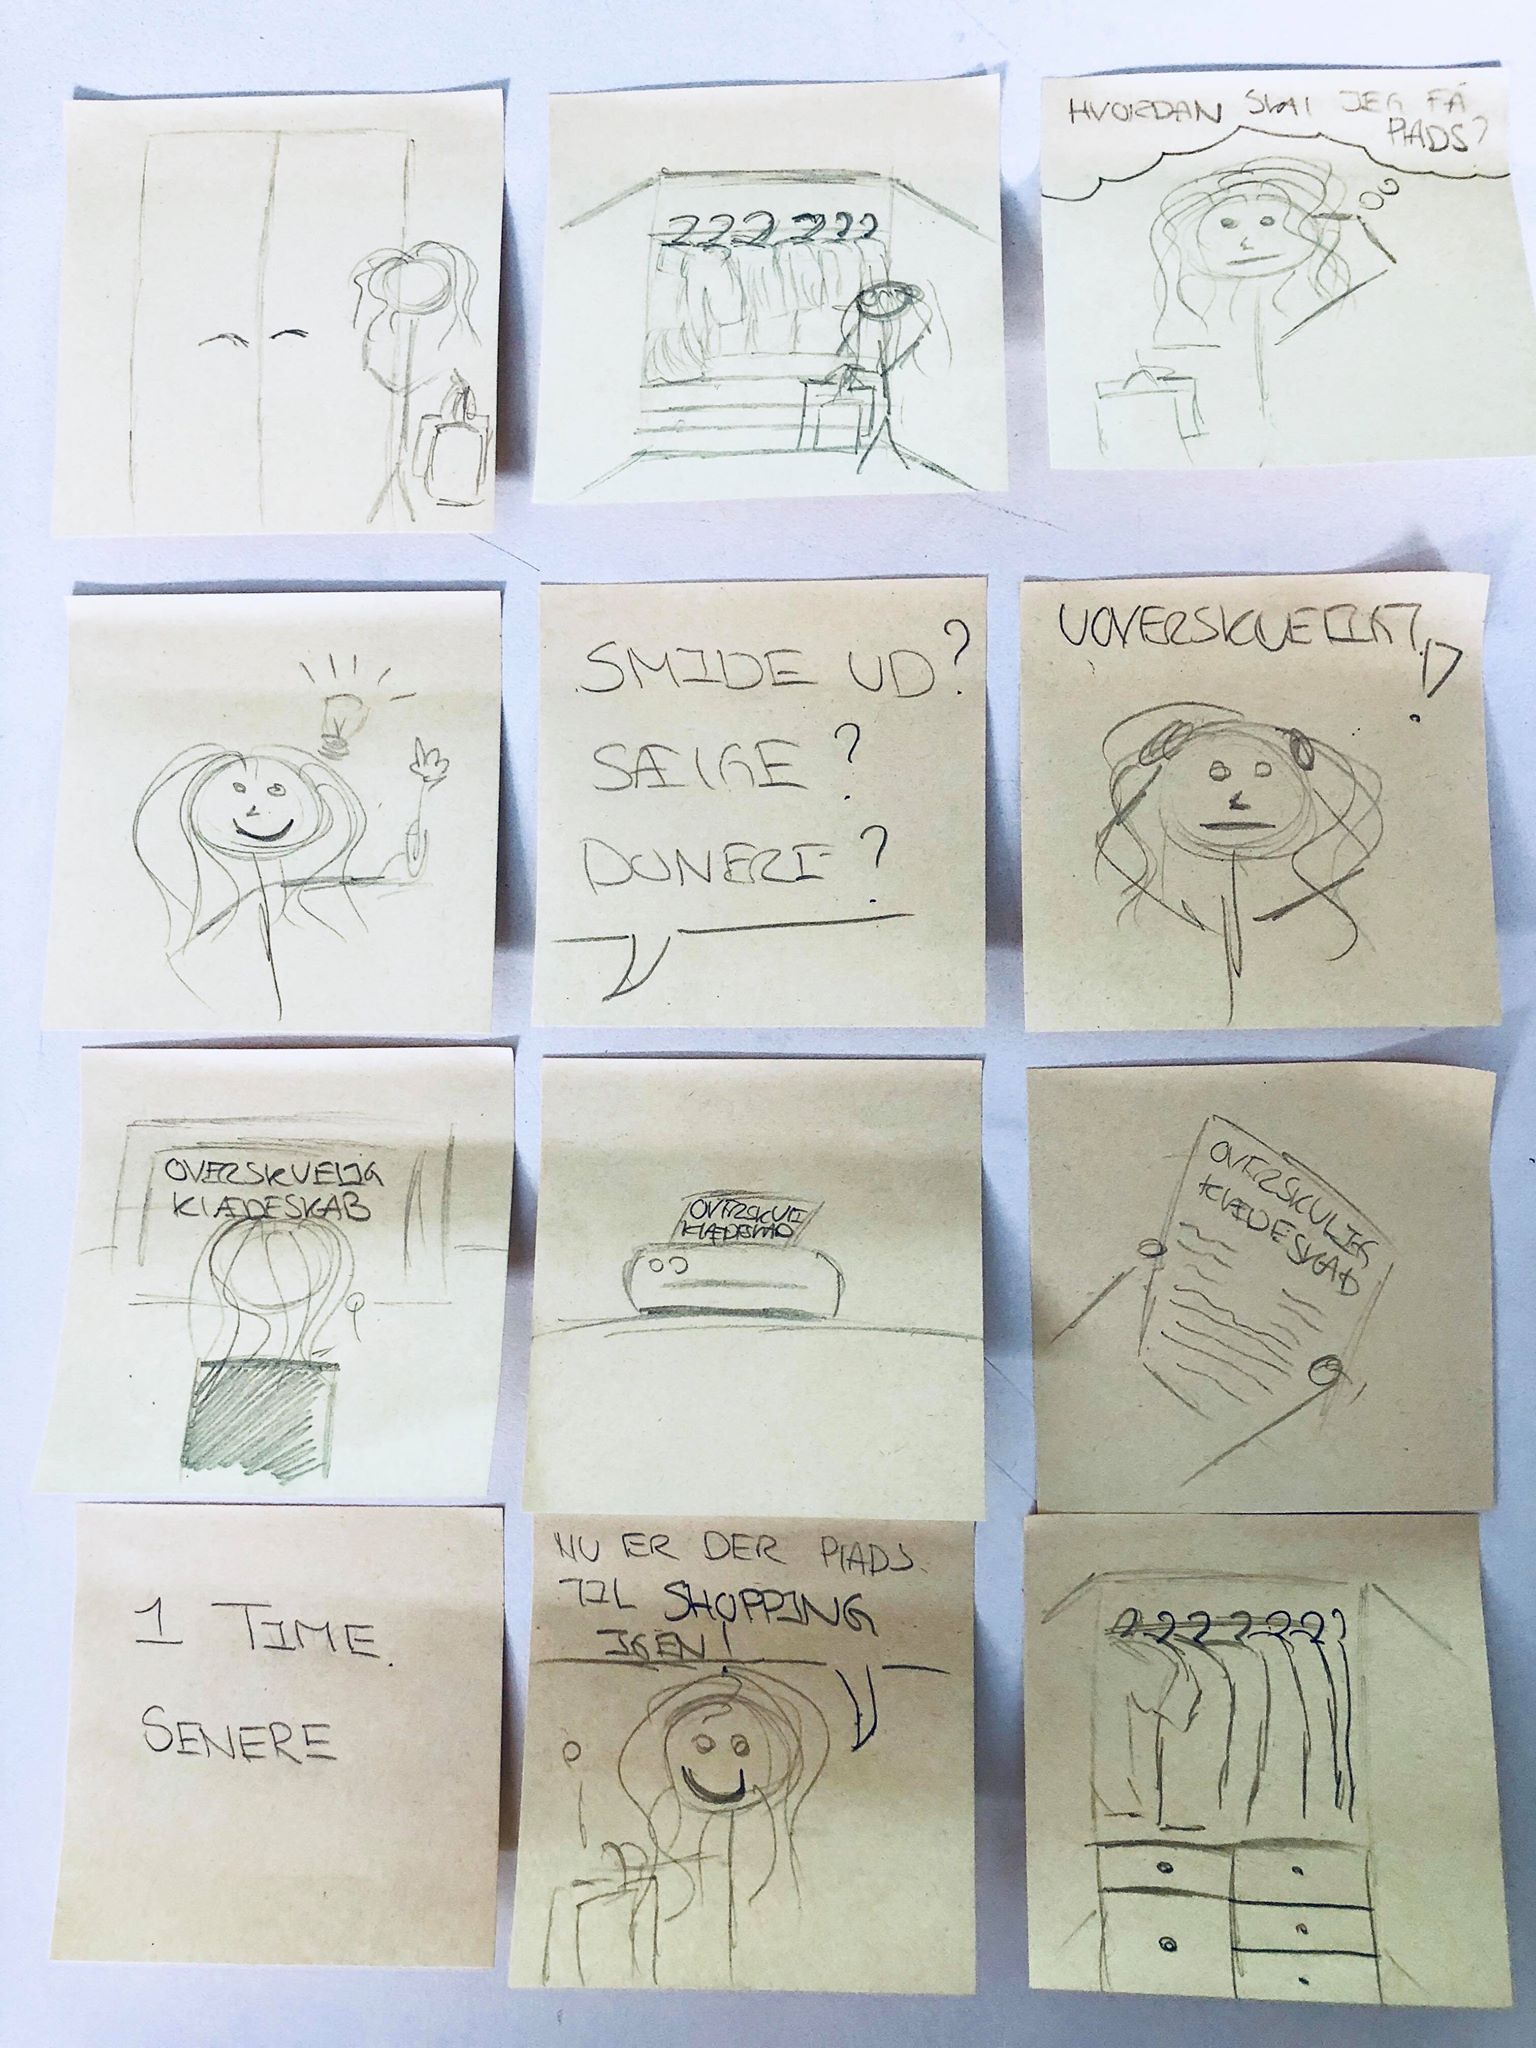 HVORDAN SKAL JEG FÅ
PLADS?
SMIDE UD?
SÆLGE?
DONERE?
UOVERSKUELIGT!
OVERSKUELIG
KLÆDESKAB
OVERSKUE
KLÆDESKAB
OVERSKULIG
KLÆDESKAB
1 TIME.
SENERE
NU ER DER PLADS
TIL SHOPPING
IGEN!